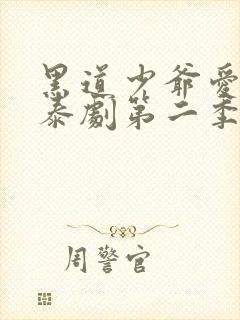 黑道少爷愛
泰劇第二季
周警官